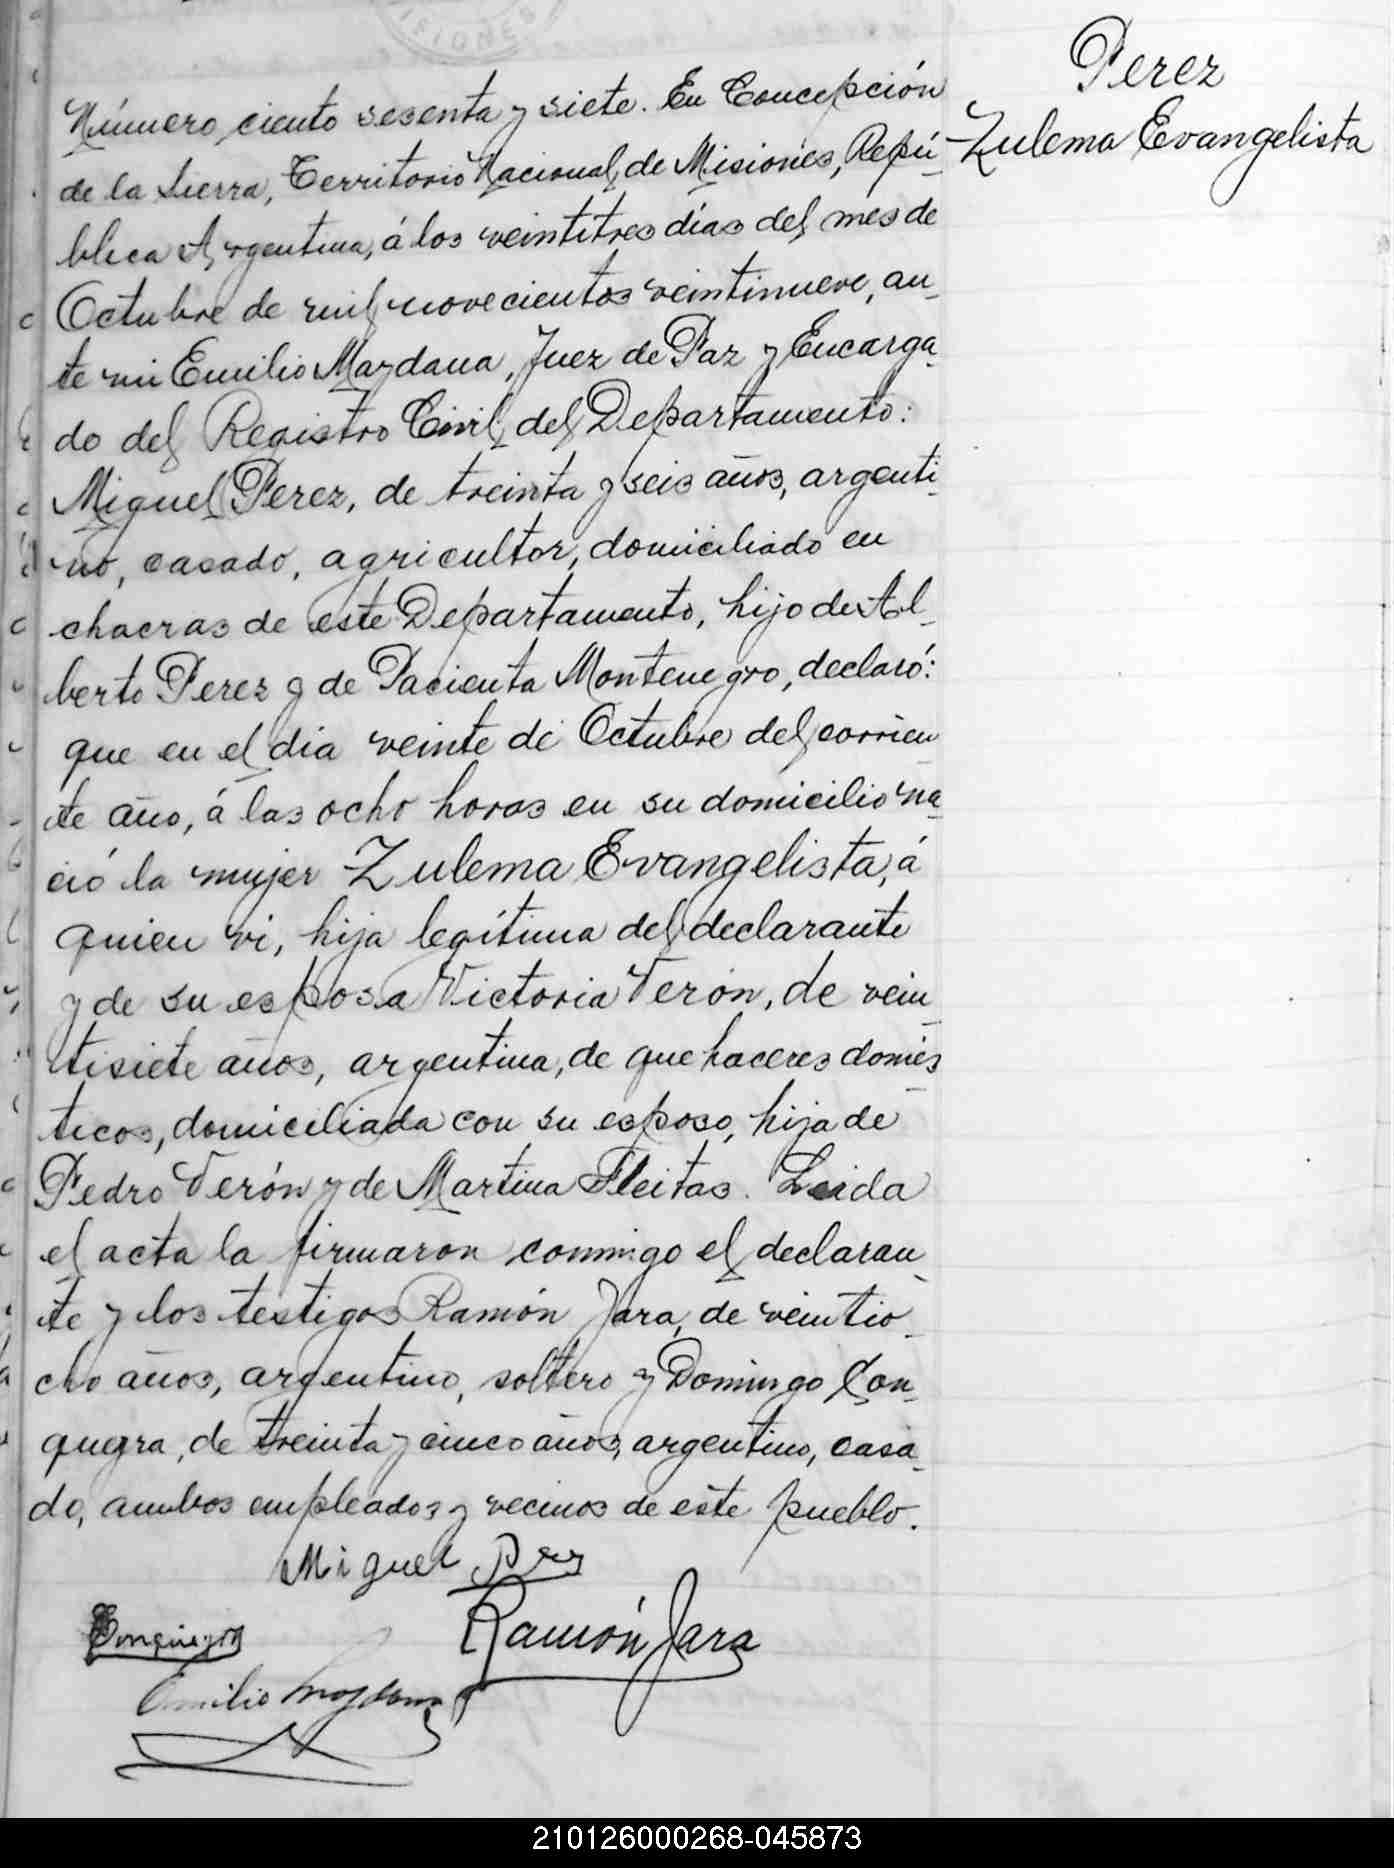 ISIONES
Perez
Zulema Evangelista
Número ciento sesenta y siete. En Concepción
de la Sierra, Territorio Nacional de Misiones, Repú-
blica Argentina, á los veintitres días del mes de
Octubre de mil novecientos veintinueve, an-
te mi Emilio Maydana, Juez de Paz y Encarga-
do del Registro Civil del Departamento:
Miguel Perez, de treinta y seis años, argenti-
no, casado, agricultor, domiciliado en
chacras de este Departamento, hijo de Al-
berto Perez y de Pacienta Montenegro, declaró:
que en el día veinte de Octubre del corrien
te año, á las ocho horas en su domicilio na-
ció la mujer Zulema Evangelista, á
quien vi, hija legítima del declarante
y de su esposa Victoria Verón, de vein-
tisiete años, argentina, de que haceres domés-
ticos, domiciliada con su esposo, hija de
Pedro Verón y de Martina Fleitas. Leida
el acta la firmaron conmigo el declaran-
te y los testigos Ramón Jara, de veintio-
cho años, argentino, soltero y Domingo Con-
quegra, de treinta y cinco años, argentino, casa-
do, ambos empleados y vecinos de este pueblo.
Miguel
Ramón Jara
Emilio Maydana
210126000268-045873